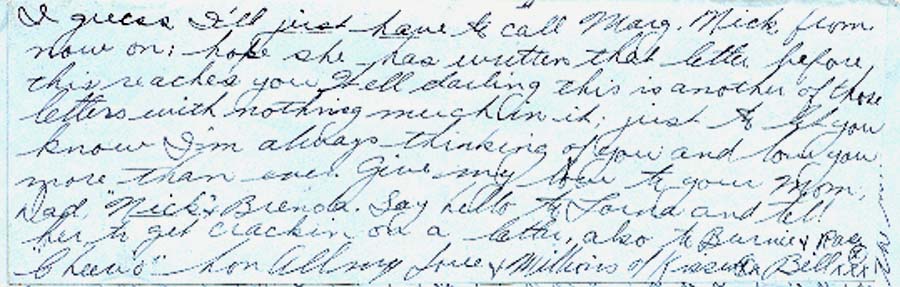 I guess I'll just have to call Marg. Nick from
now on; hope she has written that letter before
this reaches you. Well darling this is another of those
letters with nothing much in it; just to let you
know I'm always thinking of you and love you
more than ever. Give my love to your Mom,
Dad, "Nick" & Brenda. Say hello to Lorna and tell
her to get crackin on a letter, also to Bernie &
"Cheerio" hon All my Love & Millions of Kisses Bill xxx